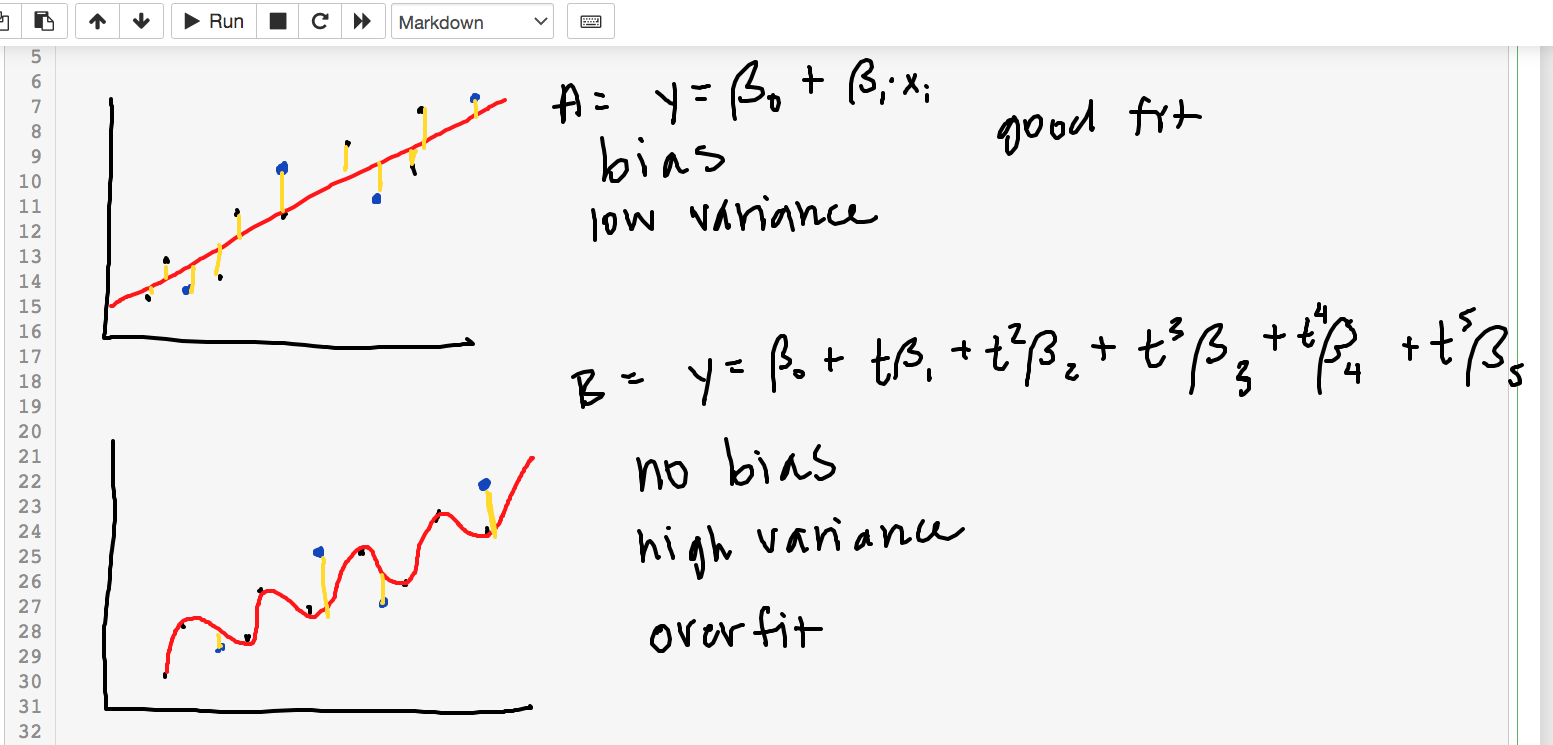 Run
Markdown
5
6
7
8
9
10
11
12
13
14
15
16
17
18
19
20
21
22
23
24
25
26
27
28
29
30
31
32
A= y = β₀ + β₁·xᵢ
good fit
bias
low variance
B = y = β₀ + tβ₁ + t²β₂ + t³β₃ + t⁴β₄ + t⁵β₅
no bias
high variance
overfit